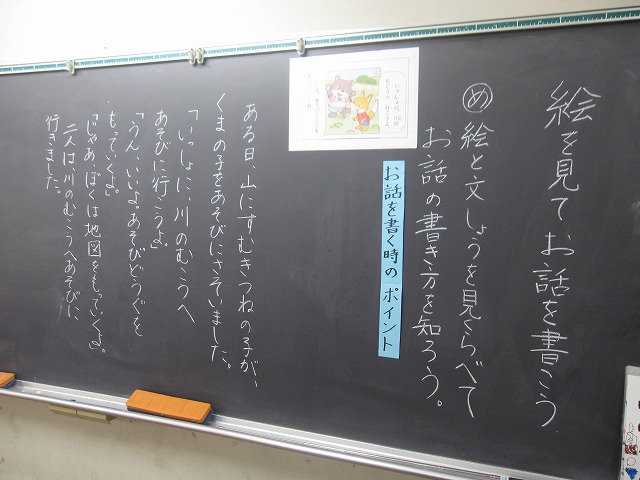 絵を見てお話を書こう
め 絵と文しょうを見くらべて
お話の書き方を知ろう。
お話を書く時のポイント
ある日、山にすむきつねの子が、
くまの子をあそびにさそいました。
「いっしょに、川のむこうへ
あそびに行こうよ」
「うん、いいよ。あそびどうぐを
もっていくよ」
「じゃあ、ぼくは地図をもっていくよ」。
二人は、川のむこうへあそびに、
行きました。